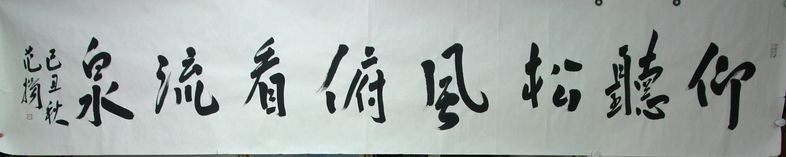 仰聽松風俯看流泉
己丑秋
范撝